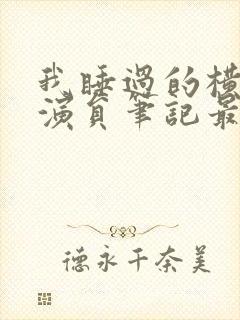 我睡過的横
演員筆記最
德永千奈美